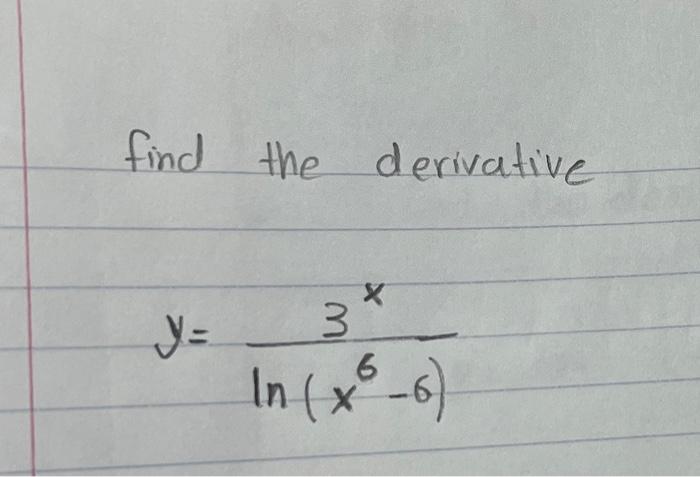 find the derivative
y = 3^x / ln(x^6 - 6)